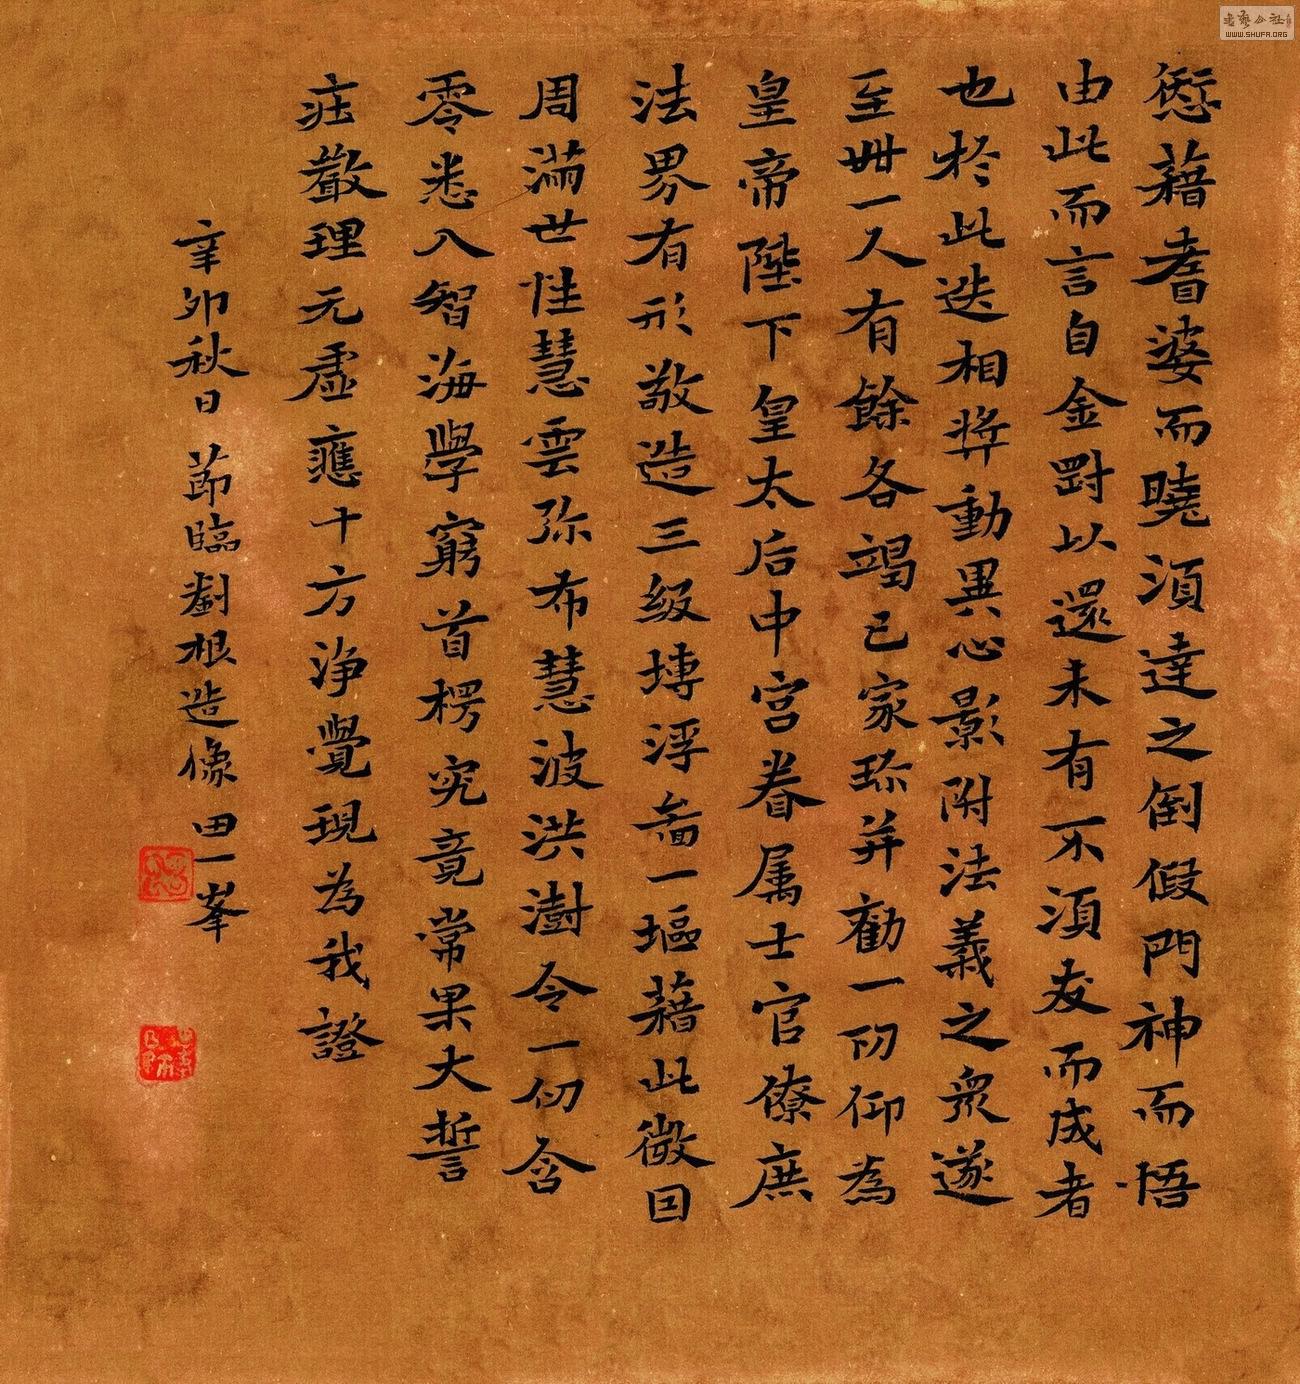 愆藉耆婆而曉須達之倒假門神而悟
由此而言自金剛以還未有不須友而成者
也於此迭相獎動異心影附法義之眾遂
至卌一人有餘各竭己家珎并勸一切仰為
皇帝陛下皇太后中宮眷属士官僚庶
法界有形敬造三级塼浮啚一塸藉此微因
周滿世性慧雲弥布慧波洪澍令一切含
零悉入智海學窮首楞究竟常果大誓
庄嚴理元虛應十方淨覺現為我證
辛卯秋日節臨劉根造像田一峯
書藝公社
WWW.SHUFA.ORG